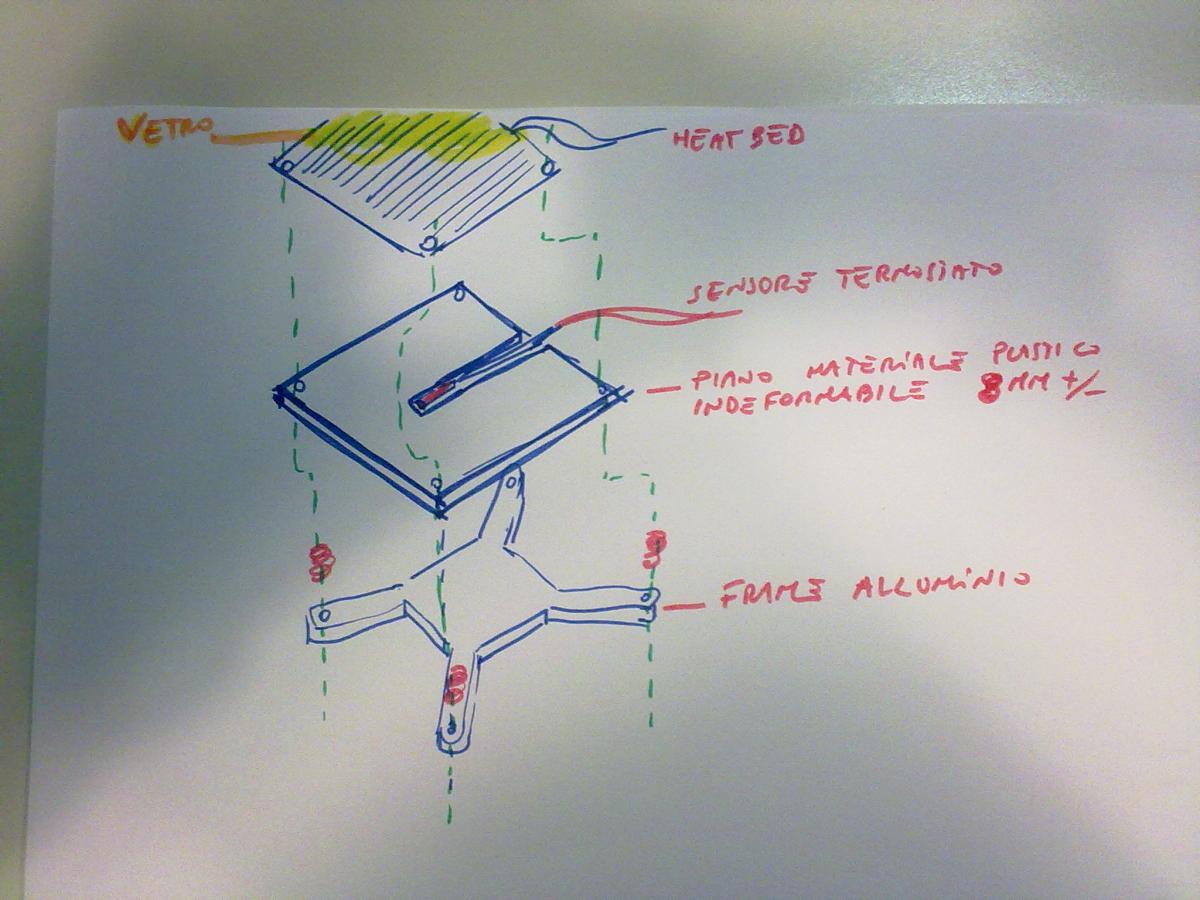 VETRO
HEATBED
SENSORE TERMOSTATO
PIANO MATERIALE PLASTICO
INDEFORMABILE 8MM +/-
FRAME ALLUMINIO